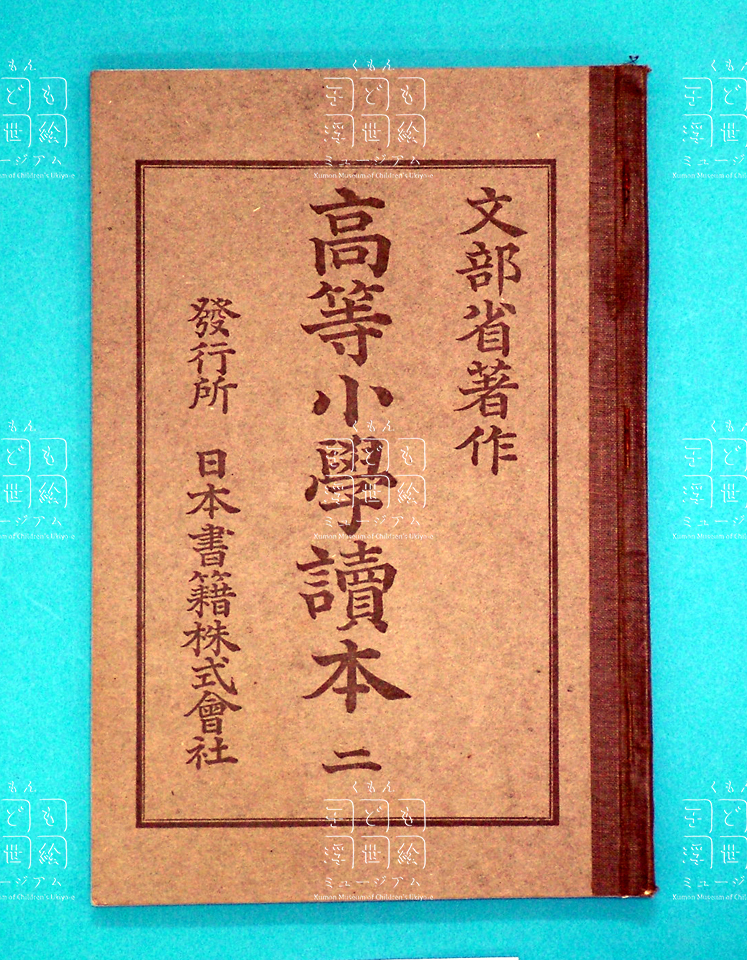 文部省著作
高等小學讀本 二
發行所 日本書籍株式會社
くもん
子ども
浮世絵
ミュージアム
Kumon Museum of Children's Ukiyo-e